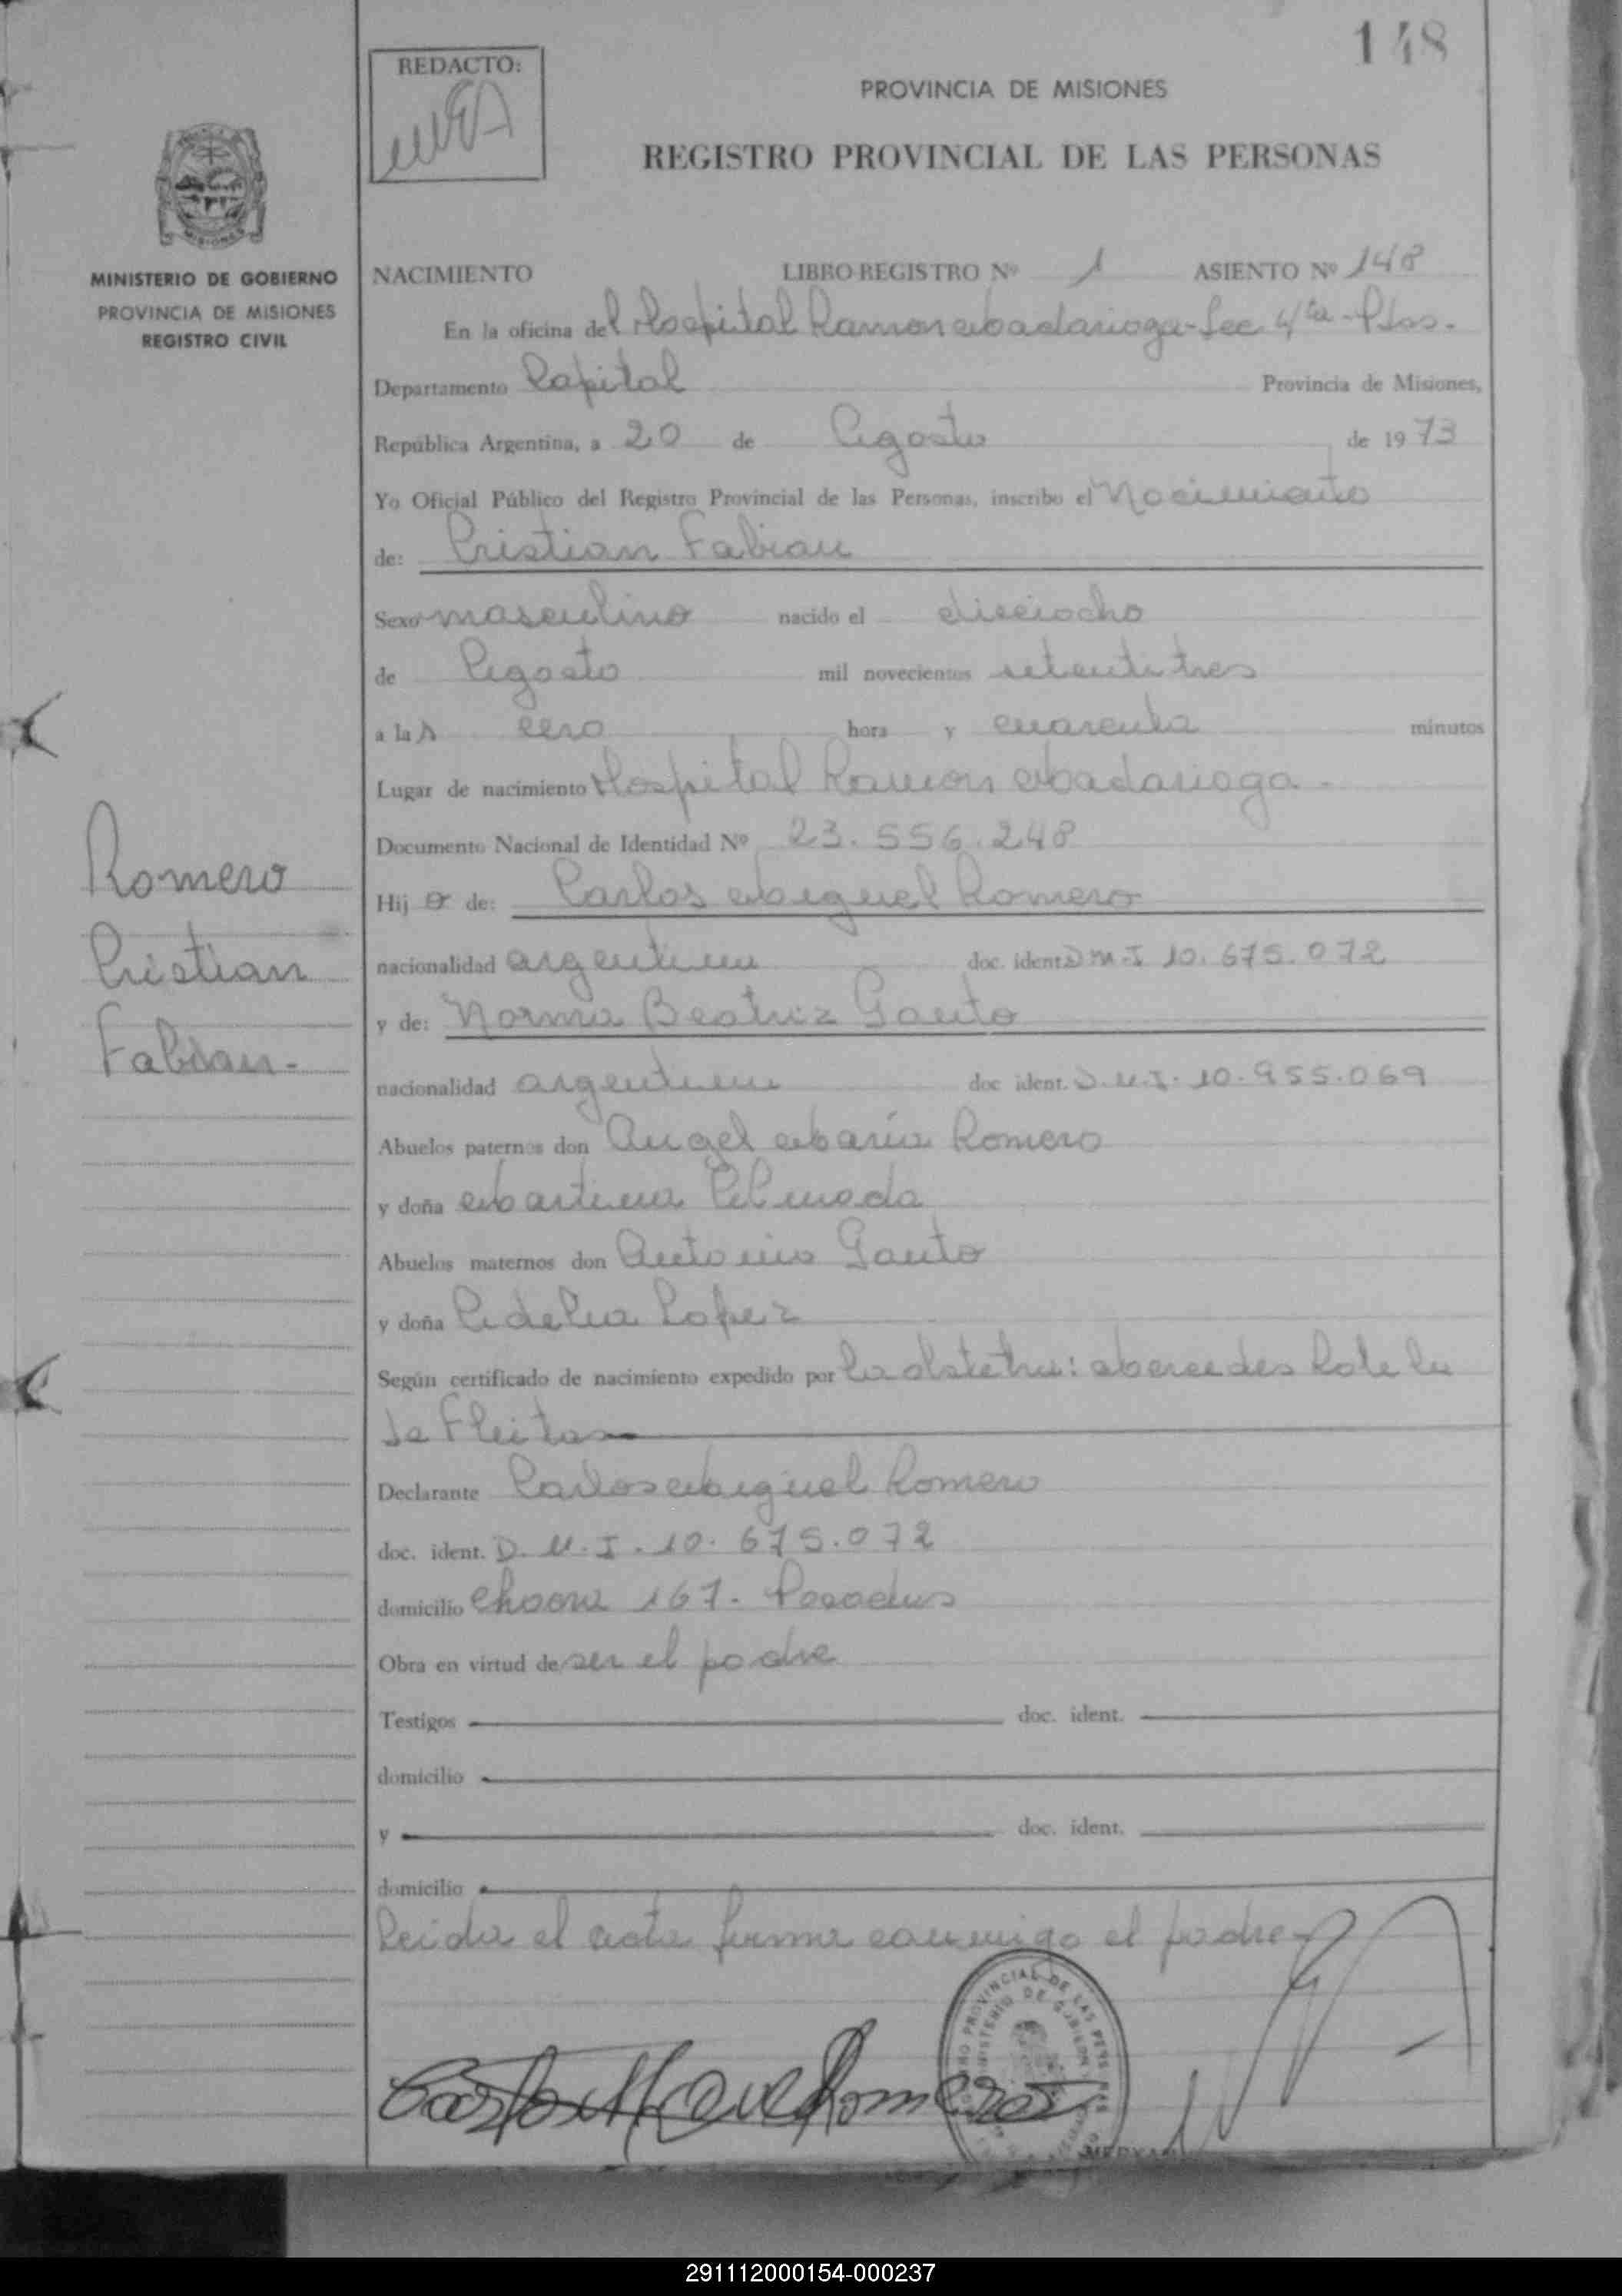 148
REDACTO:
PROVINCIA DE MISIONES
REGISTRO PROVINCIAL DE LAS PERSONAS
MISIONES
MINISTERIO DE GOBIERNO
PROVINCIA DE MISIONES
REGISTRO CIVIL
NACIMIENTO LIBRO REGISTRO Nº 1 ASIENTO Nº 148
En la oficina del Hospital Ramon Madariaga - Sec 4ta - Pdas.
Departamento Capital Provincia de Misiones,
República Argentina, a 20 de Agosto de 1973
Yo Oficial Público del Registro Provincial de las Personas, inscribo el Nacimiento
de: Cristian Fabian
Sexo masculino nacido el dieciocho
de Agosto mil novecientos setentitres
a las cero hora y cuarenta minutos
Lugar de nacimiento Hospital Ramon Madariaga -
Documento Nacional de Identidad Nº 23.556.248
Hijo de: Carlos Miguel Romero
nacionalidad argentina doc. ident. D.N.I 10.675.072
y de: Norma Beatriz Gauto
nacionalidad argentina doc ident. D.N.I. 10.955.069
Abuelos paternos don Angel María Romero
y doña Martina
Abuelos maternos don Antonio Gauto
y doña Lopez
Según certificado de nacimiento expedido por la obstetra: Mercedes
de Fleitas
Declarante Carlos Miguel Romero
doc. ident. D.N.I. 10.675.072
domicilio 167. Posadas
Obra en virtud de ser el padre
Testigos doc. ident.
domicilio
y doc. ident.
domicilio
Leida el acta firma conmigo el padre
Romero
Cristian
Fabian-
291112000154-000237